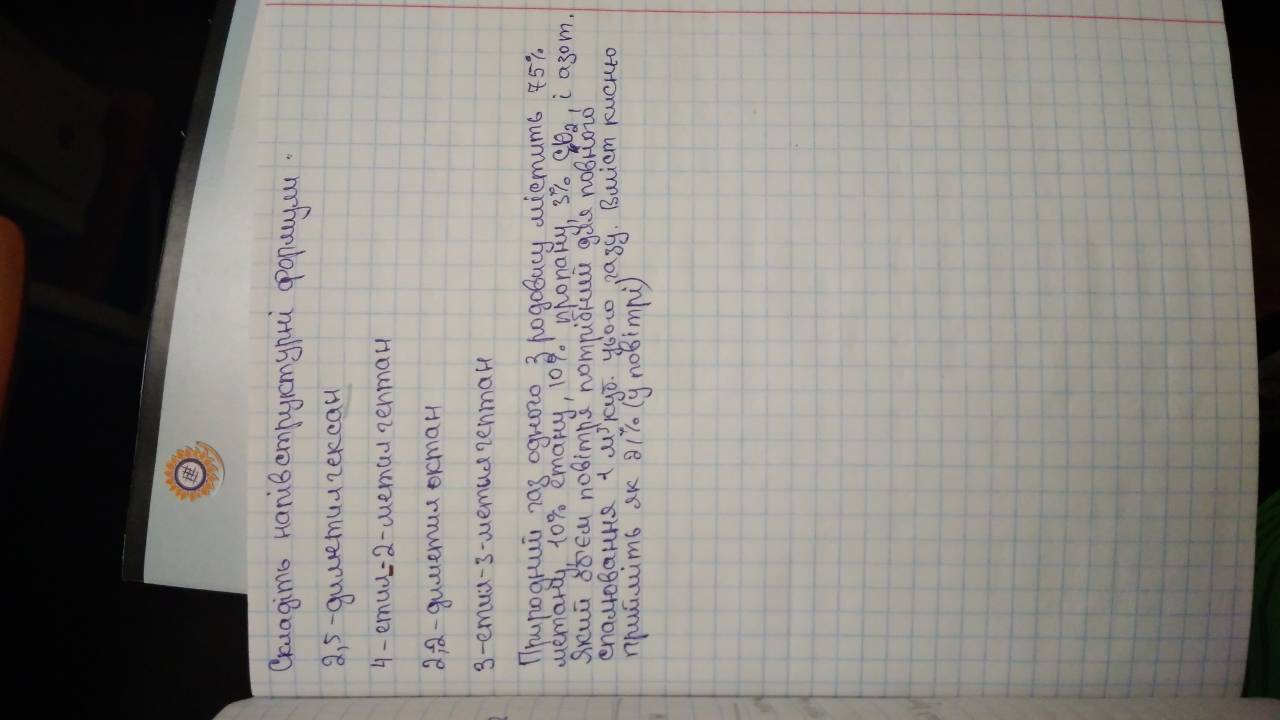 Складіть напівструктурні формули.
2,5-диметилгексан
4-етил-2-метилгептан
2,2-диметилоктан
3-етил-3-метилгептан
Природний газ одного з родовису містить 75%
метану, 10% етану, 10% пропану, 3% CO₂, і азот.
Який об'єм повітря потрібний для повного
спалювання 1 м³ куб. цього газу. Вміст кисню
прийміть як 21% (у повітрі)